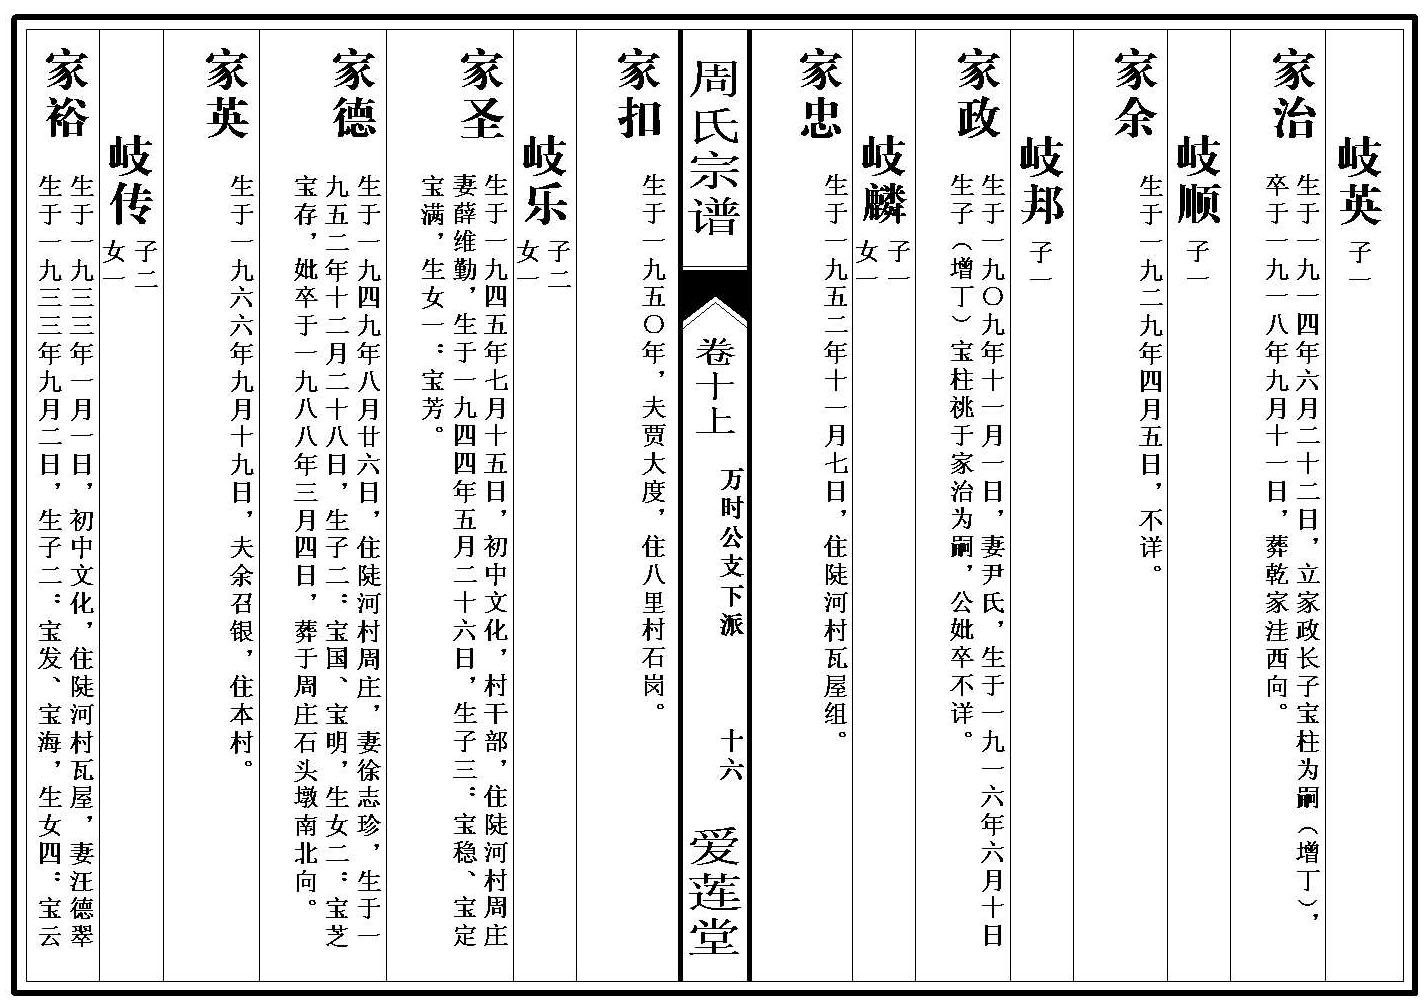 岐英
子一
家治
生于一九一四年六月二十二日，立家政长子宝柱为嗣（增丁），
卒于一九一八年九月十一日，葬乾家洼西向。
岐顺
子一
家余
生于一九二九年四月五日，不详。
岐邦
子一
家政
生于一九〇九年十一月一日，妻尹氏，生于一九一六年六月十日
生子（增丁）宝柱祧于家治为嗣，公妣卒不详。
岐麟
子一
女一
家忠
生于一九五二年十一月七日，住陡河村瓦屋组。
周氏宗谱
卷十上
万时公支下派
十六
爱莲堂
家扣
生于一九五〇年，夫贾大度，住八里村石岗。
岐乐
子二
女一
家圣
生于一九四五年七月十五日，初中文化，村干部，住陡河村周庄
妻薛维勤，生于一九四四年五月二十六日，生子三：宝稳、宝定
宝满，生女一：宝芳。
家德
生于一九四九年八月廿六日，住陡河村周庄，妻徐志珍，生于一
九五二年十二月二十八日，生子二：宝国、宝明，生女二：宝芝
宝存，妣卒于一九八八年三月四日，葬于周庄石头墩南北向。
家英
生于一九六六年九月十九日，夫余召银，住本村。
岐传
子二
女一
家裕
生于一九三三年一月一日，初中文化，住陡河村瓦屋，妻汪德翠
生于一九三三年九月二日，生子二：宝发、宝海，生女四：宝云